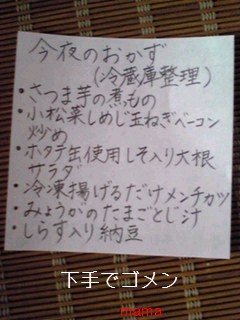 今夜のおかず
(冷蔵庫整理)
・さつま芋の煮もの
・小松菜しめじ玉ねぎベーコン
炒め
・ホタテ缶使用しそ入り大根
サラダ
・冷凍揚げるだけメンチカツ
・みょうがのたまごとじ汁
・しらす入り納豆
下手でゴメン
mama